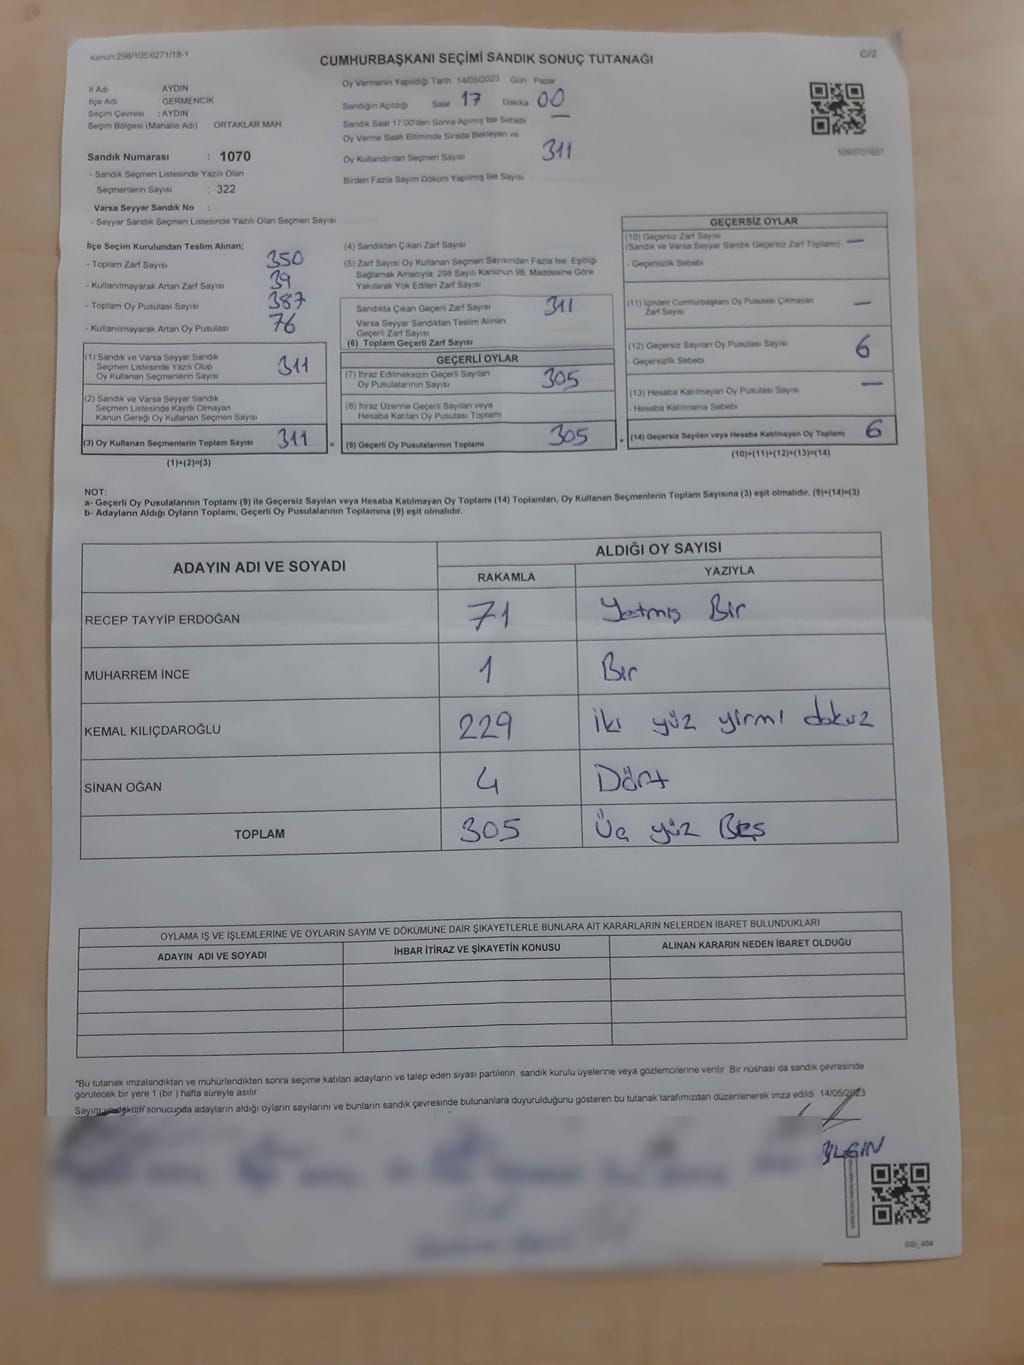 Kanun:298/105:6271/18-1
CUMHURBAŞKANI SEÇİMİ SANDIK SONUÇ TUTANAĞI
C/2
İl Adı AYDIN
İlçe Adı GERMENCİK
Seçim Çevresi : AYDIN
Seçim Bölgesi (Mahalle Adı) ORTAKLAR MAH
Sandık Numarası : 1070
- Sandık Seçmen Listesinde Yazılı Olan
Seçmenlerin Sayısı : 322
Varsa Seyyar Sandık No :
- Seyyar Sandık Seçmen Listesinde Yazılı Olan Seçmen Sayısı
Oy Vermenin Yapıldığı Tarih 14/05/2023 Gün Pazar
Sandığın Açıldığı Saat 17 Dakika 00
Sandık Saat 17:00'den Sonra Açılmış İse Sebebi —
Oy Verme Saati Bitiminde Sırada Bekleyen ve
Oy Kullandırılan Seçmen Sayısı 311
Birden Fazla Sayım Döküm Yapılmış İse Sayısı
İlçe Seçim Kurulundan Teslim Alınan;
- Toplam Zarf Sayısı 350
- Kullanılmayarak Artan Zarf Sayısı 39
- Toplam Oy Pusulası Sayısı 387
- Kullanılmayarak Artan Oy Pusulası 76
(1) Sandık ve Varsa Seyyar Sandık
Seçmen Listesinde Yazılı Olup
Oy Kullanan Seçmenlerin Sayısı 311
(2) Sandık ve Varsa Seyyar Sandık
Seçmen Listesinde Kayıtlı Olmayan
Kanun Gereği Oy Kullanan Seçmen Sayısı
(3) Oy Kullanan Seçmenlerin Toplam Sayısı 311 =
(1)+(2)=(3)
(4) Sandıktan Çıkan Zarf Sayısı
(5) Zarf Sayısı Oy Kullanan Seçmen Sayısından Fazla İse, Eşitliği
Sağlamak Amacıyla; 298 Sayılı Kanunun 98. Maddesine Göre
Yakılarak Yok Edilen Zarf Sayısı
Sandıkta Çıkan Geçerli Zarf Sayısı 311
Varsa Seyyar Sandıktan Teslim Alınan
Geçerli Zarf Sayısı
(6) Toplam Geçerli Zarf Sayısı
GEÇERLİ OYLAR
(7) İtiraz Edilmeksizin Geçerli Sayılan
Oy Pusulalarının Sayısı 305
(8) İtiraz Üzerine Geçerli Sayılan veya
Hesaba Katılan Oy Pusulası Toplamı
(9) Geçerli Oy Pusulalarının Toplamı 305 +
GEÇERSİZ OYLAR
(10) Geçersiz Zarf Sayısı
(Sandık ve Varsa Seyyar Sandık Geçersiz Zarf Toplamı) —
- Geçersizlik Sebebi
(11) İçinden Cumhurbaşkanı Oy Pusulası Çıkmayan
Zarf Sayısı —
(12) Geçersiz Sayılan Oy Pusulası Sayısı 6
- Geçersizlik Sebebi
(13) Hesaba Katılmayan Oy Pusulası Sayısı —
- Hesaba Katılmama Sebebi
(14) Geçersiz Sayılan veya Hesaba Katılmayan Oy Toplamı 6
(10)+(11)+(12)+(13)=(14)
NOT:
a- Geçerli Oy Pusulalarının Toplamı (9) ile Geçersiz Sayılan veya Hesaba Katılmayan Oy Toplamı (14) Toplamları, Oy Kullanan Seçmenlerin Toplam Sayısına (3) eşit olmalıdır. (9)+(14)=(3)
b- Adayların Aldığı Oyların Toplamı, Geçerli Oy Pusulalarının Toplamına (9) eşit olmalıdır.
ADAYIN ADI VE SOYADI ALDIĞI OY SAYISI
RAKAMLA YAZIYLA
RECEP TAYYİP ERDOĞAN 71 Yetmiş Bir
MUHARREM İNCE 1 Bir
KEMAL KILIÇDAROĞLU 229 iki yüz yirmi dokuz
SİNAN OĞAN 4 Dört
TOPLAM 305 Üç yüz Beş
OYLAMA İŞ VE İŞLEMLERİNE VE OYLARIN SAYIM VE DÖKÜMÜNE DAİR ŞİKAYETLERLE BUNLARA AİT KARARLARIN NELERDEN İBARET BULUNDUKLARI
ADAYIN ADI VE SOYADI İHBAR İTİRAZ VE ŞİKAYETİN KONUSU ALINAN KARARIN NEDEN İBARET OLDUĞU
*Bu tutanak imzalandıktan ve mühürlendikten sonra seçime katılan adayların ve talep eden siyasi partilerin sandık kurulu üyelerine veya gözlemcilerine verilir. Bir nüshası da sandık çevresinde
görülecek bir yere 1 (bir) hafta süreyle asılır
Sayım ve döküm sonucunda adayların aldığı oyların sayılarını ve bunların sandık çevresinde bulunanlara duyurulduğunu gösteren bu tutanak tarafımızdan düzenlenerek imza edildi 14/05/2023
BİLGİN